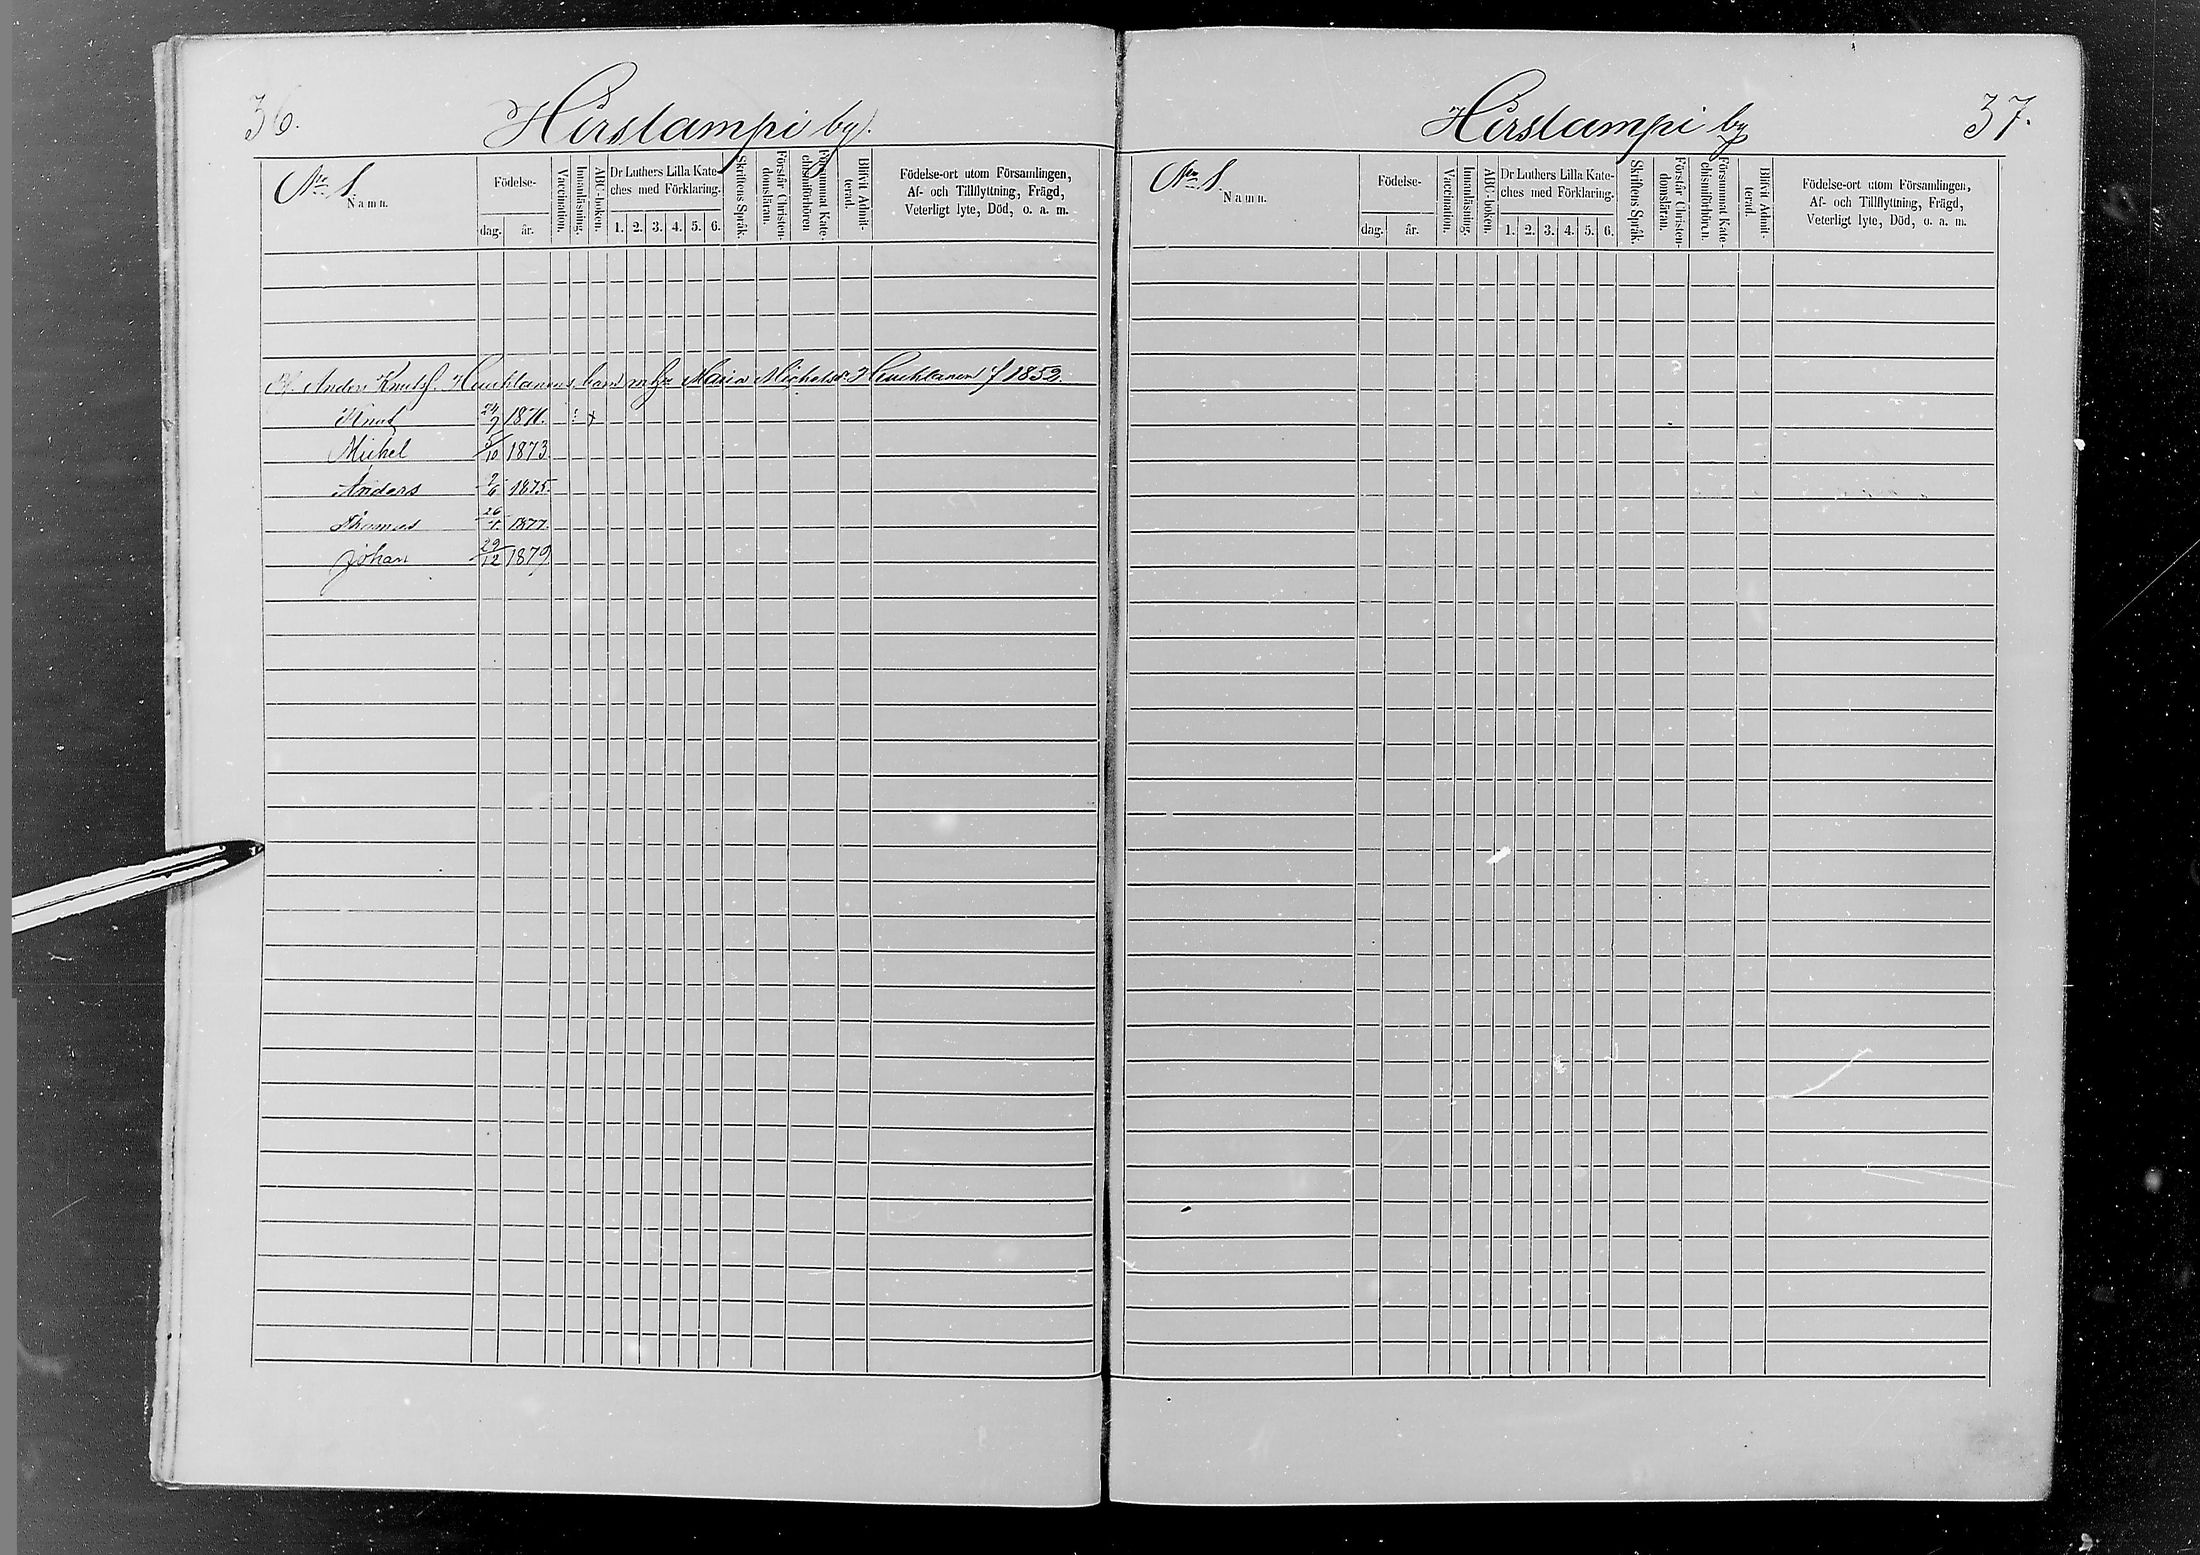 36.
Hirslampi by.
No 1.
Namn.
Födelse-
dag.
år.
Vaccination.
Innanläsning.
ABC-boken.
Dr Luthers Lilla Kate-
ches med Förklaring.
1. 2. 3. 4. 5. 6.
Skriftens Språk.
Förstår Christen-
domsläran.
Försummat Kate-
chismiförhören
Blifvit Admit-
terad.
Födelse-ort utom Församlingen,
Af- och Tillflyttning, Frägd,
Veterligt lyte, Död, o. a. m.
Anders Knutss. barn m h Maria Michelsdr f 1852.
Knut 24/9 1871. : x
Michel 5/10 1873
Anders 2/6 1875.
Thomas 26 1877.
Johan 29/12 1879
Hirslampi by
37.
No 1
Namn.
Födelse-
dag.
år.
Vaccination.
Innanläsning.
ABC-boken.
Dr Luthers Lilla Kate-
ches med Förklaring.
1. 2. 3. 4. 5. 6.
Skriftens Språk.
Förstår Christen-
domsläran.
Försummat Kate-
chismiförhören.
Blifvit Admit-
terad.
Födelse-ort utom Församlingen,
Af- och Tillflyttning, Frägd,
Veterligt lyte, Död, o. a. m.